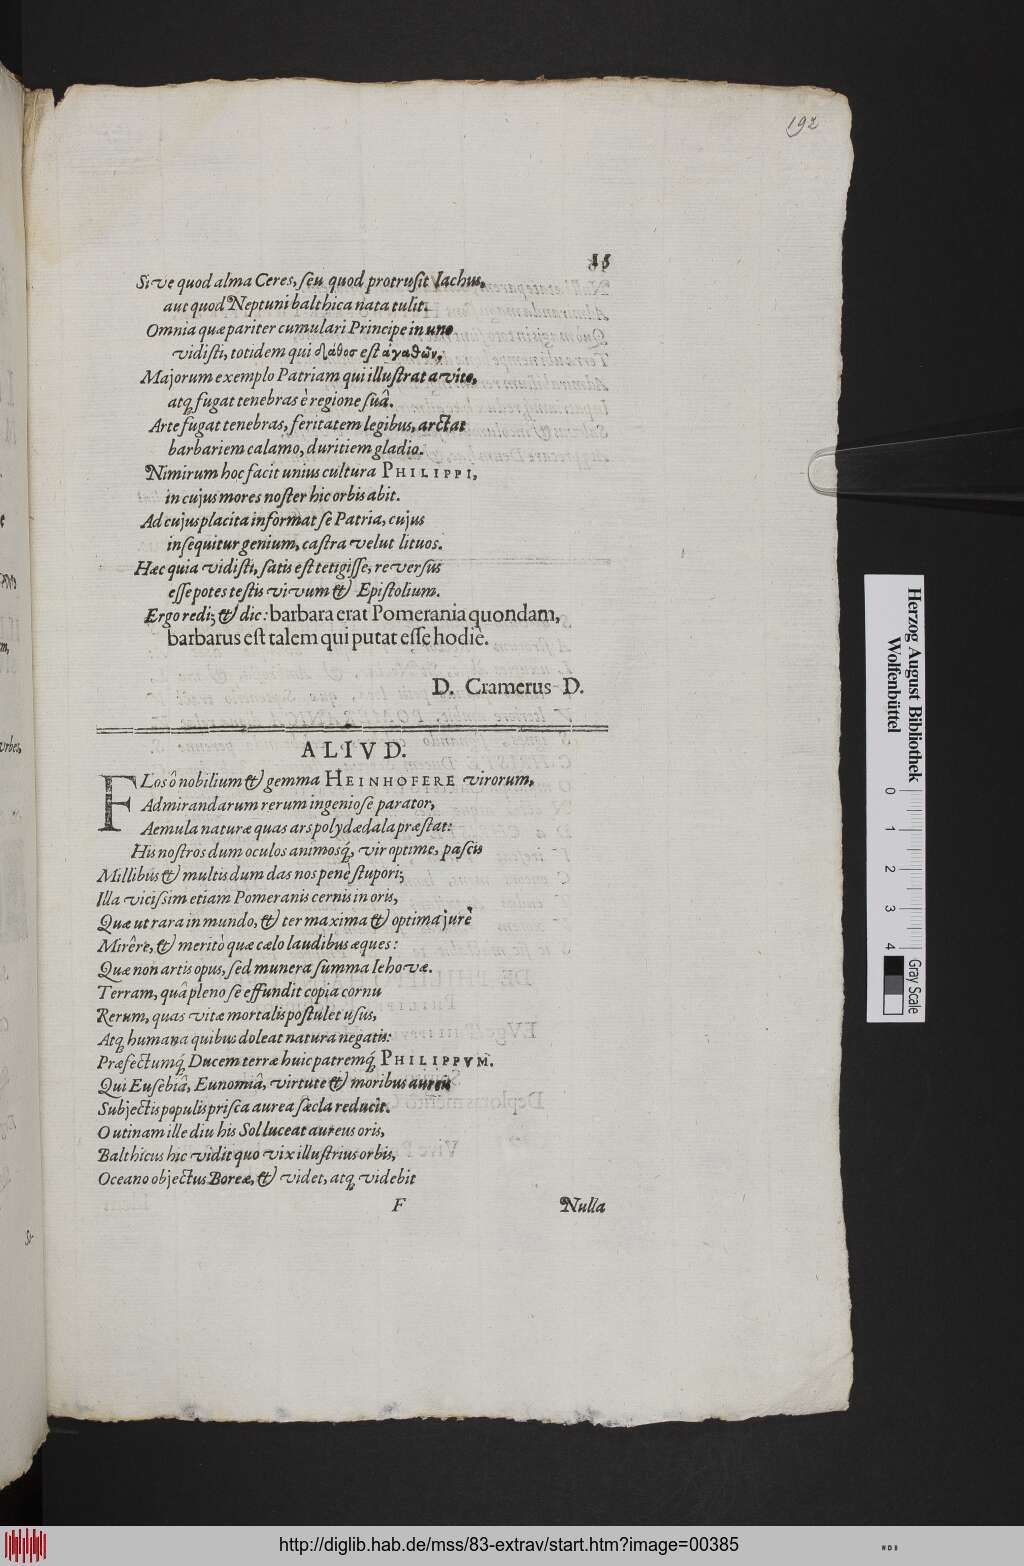 192
15
Sive quod alma Ceres, seu quod protrusit Iachus,
aut quod Neptuni balthica nata tulit.
Omnia quæ pariter cumulari Principe in uno
vidisti, totidem qui est ἀγαθῶν,
Majorum exemplo Patriam qui illustrat avito,
atq; fugat tenebras è regione suâ.
Arte fugat tenebras, feritatem legibus, arctat
barbariem calamo, duritiem gladio.
Nimirum hoc facit unius cultura PHILIPPI,
in cujus mores noster hic orbis abit.
Ad cujus placita informat se Patria, cujus
insequitur genium, castra velut lituos.
Hæc quia vidisti, satis est tetigisse, reversus
esse potes testis vivum & Epistolium.
Ergo redi; & dic: barbara erat Pomerania quondam,
barbarus est talem qui putat esse hodiè.
D. Cramerus D.
ALIVD.
FLos ô nobilium & gemma HEINHOFERE virorum,
Admirandarum rerum ingeniose parator,
Aemula naturæ quas ars polydædala præstat:
His nostros dum oculos animosq́;, vir optime, pascis
Millibus & multis dum das nos penè stupori;
Illa vicissim etiam Pomeranis cernis in oris,
Quæ ut rara in mundo, & ter maxima & optima jurè
Mirêre, & meritò quæ cælo laudibus æques:
Quæ non artis opus, sed munera summa Iehovæ.
Terram, quâ pleno se effundit copia cornu
Rerum, quas vitæ mortalis postulet usus,
Atq; humana quibus doleat natura negatis:
Præfectumq́; Ducem terræ huic patremq́; PHILIPPVM.
Qui Eusebiâ, Eunomiâ, virtute & moribus aureu
Subjectis populis prisca aurea sæcla reducit.
O utinam ille diu his Sol luceat aureus oris,
Balthicus hic vidit quo vix illustrius orbis,
Oceano objectus Boreæ, & videt, atq; videbit
F
Nulla
Herzog August Bibliothek
Wolfenbüttel
0 1 2 3 4
Gray Scale
http://diglib.hab.de/mss/83-extrav/start.htm?image=00385